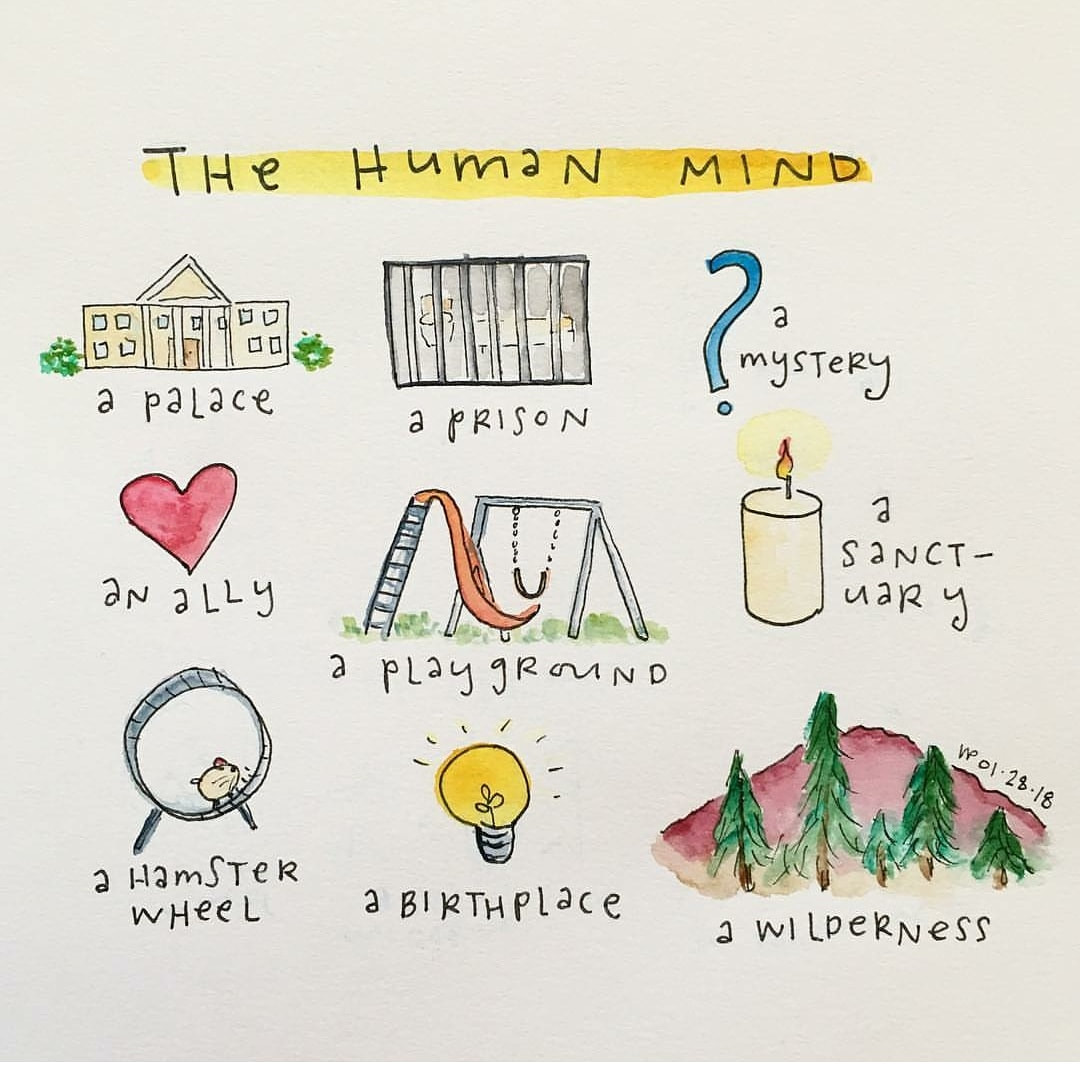 THe HumaN MIND
a paLace
a PRISON
a
mysTeRy
aN aLLy
a PLaygROUND
a
SaNCT-
uaRy
a HamSTeR
WHeeL
a BIRTHPLace
a WILDeRNeSS
VP 01.28.18